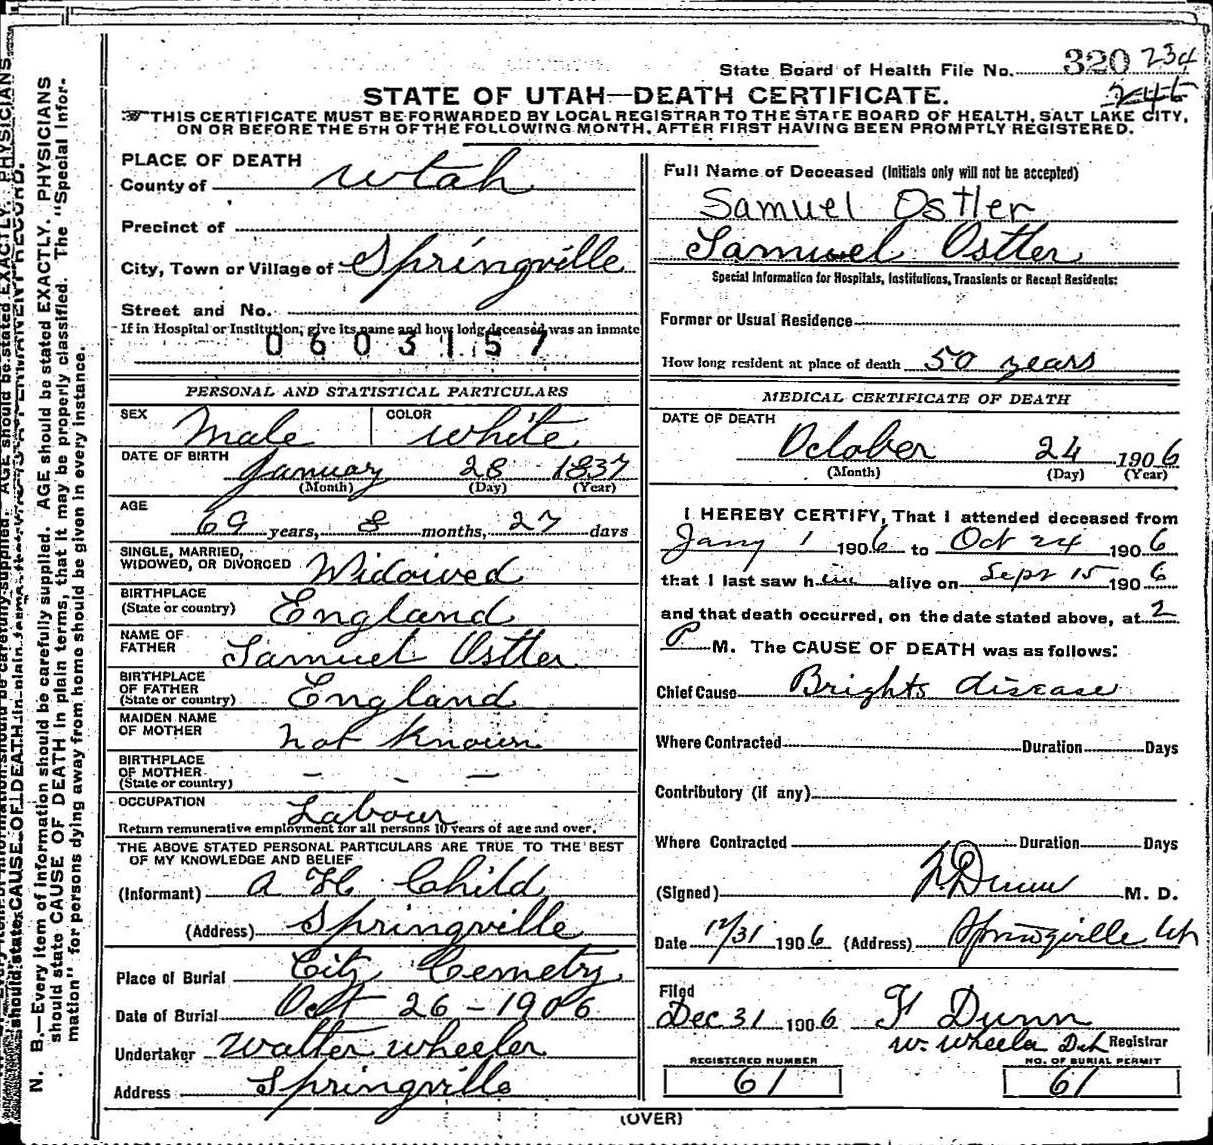 State Board of Health File No. 320 234
245
STATE OF UTAH—DEATH CERTIFICATE.
THIS CERTIFICATE MUST BE FORWARDED BY LOCAL REGISTRAR TO THE STATE BOARD OF HEALTH, SALT LAKE CITY,
ON OR BEFORE THE 5TH OF THE FOLLOWING MONTH, AFTER FIRST HAVING BEEN PROMPTLY REGISTERED.
PLACE OF DEATH
County of Utah
Precinct of
City, Town or Village of Springville
Street and No.
If in Hospital or Institution, give its name and how long deceased was an inmate
0603157
PERSONAL AND STATISTICAL PARTICULARS
SEX Male COLOR white
DATE OF BIRTH January 28 1837
(Month) (Day) (Year)
AGE
69 years, 8 months, 27 days
SINGLE, MARRIED,
WIDOWED, OR DIVORCED Widowed
BIRTHPLACE
(State or country) England
NAME OF
FATHER Samuel Ostler
BIRTHPLACE
OF FATHER
(State or country) England
MAIDEN NAME
OF MOTHER not known
BIRTHPLACE
OF MOTHER
(State or country) – – –
OCCUPATION Labour
Return remunerative employment for all persons 10 years of age and over.
THE ABOVE STATED PERSONAL PARTICULARS ARE TRUE TO THE BEST
OF MY KNOWLEDGE AND BELIEF
(Informant) A H Child
(Address) Springville
Place of Burial City Cemetry
Date of Burial Oct 26-1906
Undertaker Walter wheeler
Address Springville
Full Name of Deceased (Initials only will not be accepted)
Samuel Ostler
Samuel Ostler
Special Information for Hospitals, Institutions, Transients or Recent Residents:
Former or Usual Residence
How long resident at place of death 50 years
MEDICAL CERTIFICATE OF DEATH
DATE OF DEATH
October 24 1906
(Month) (Day) (Year)
I HEREBY CERTIFY, That I attended deceased from
Jany 1 1906 to Oct 24 1906
that I last saw him alive on Sept 15 1906
and that death occurred, on the date stated above, at 2
P M. The CAUSE OF DEATH was as follows:
Chief Cause Brights disease
Where Contracted Duration Days
Contributory (if any)
Where Contracted Duration Days
(Signed) Dunn M. D.
Date 12/31 1906 (Address) Springville Ut
Filed
Dec 31 1906 F Dunn
W. Wheeler Dep Registrar
REGISTERED NUMBER
61
NO. OF BURIAL PERMIT
61
(OVER)
N. B.—Every item of information should be carefully supplied. AGE should be stated EXACTLY. PHYSICIANS
should state CAUSE OF DEATH in plain terms, that it may be properly classified. The "Special Infor-
mation" for persons dying away from home should be given in every instance.